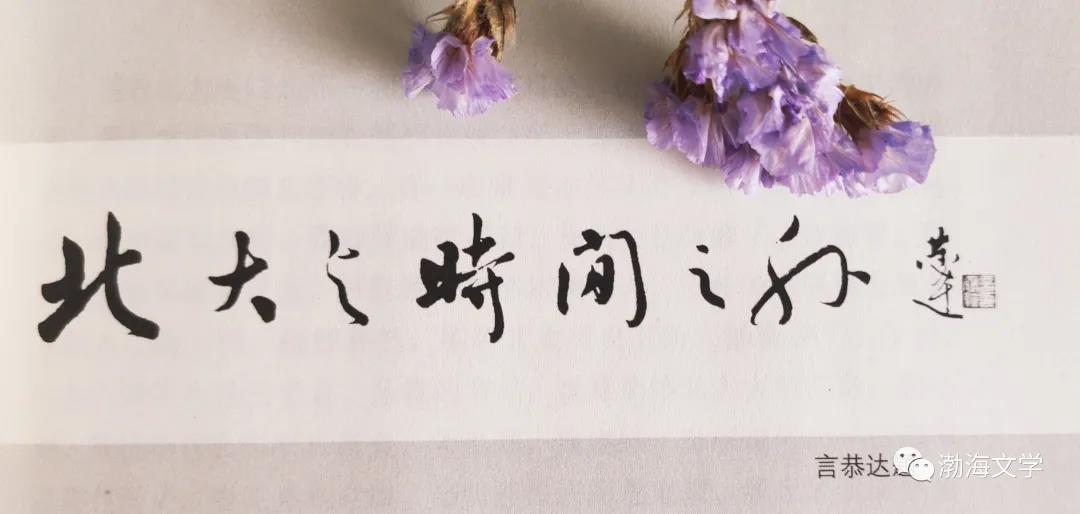 北大之時間之外 恭達
言恭达
渤海文学